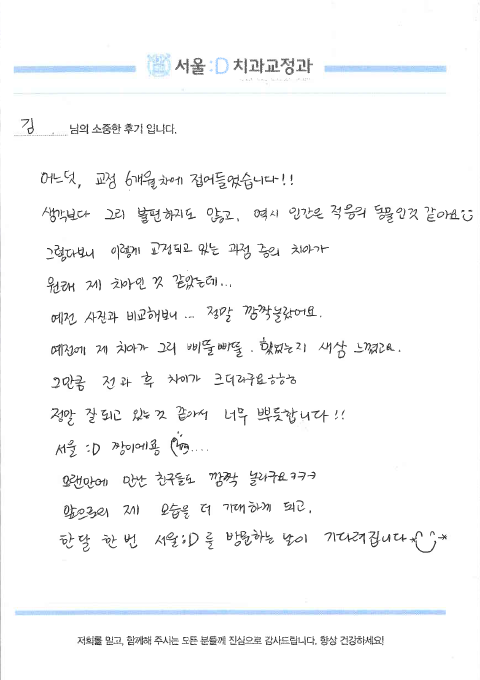 서울:D 치과교정과
김 님의 소중한 후기 입니다.
어느덧, 교정 6개월차에 접어들었습니다!!
생각보다 그리 불편하지도 않고, 역시 인간은 적응의 동물인것 같아요
그렇다보니 이렇게 교정되고 있는 과정 중의 치아가
원래 제 치아인 것 같았는데...
예전 사진과 비교해보니... 정말 깜짝놀랐어요.
예전에 제 치아가 그리 삐뚤빼뚤. 했었는지 새삼 느꼈고요.
그만큼 전과 후 차이가 크더라구요ㅎㅎㅎ
정말 잘 되고 있는 것 같아서 너무 뿌듯합니다!!
서울 :D 짱이에용 ....
오랜만에 만난 친구들도 깜짝 놀라구요ㅋㅋㅋ
앞으로의 제 모습을 더 기대하게 되고,
한달 한 번 서울:D를 방문하는 날이 기다려집니다
저희를 믿고, 함께해 주시는 모든 분들께 진심으로 감사드립니다. 항상 건강하세요!